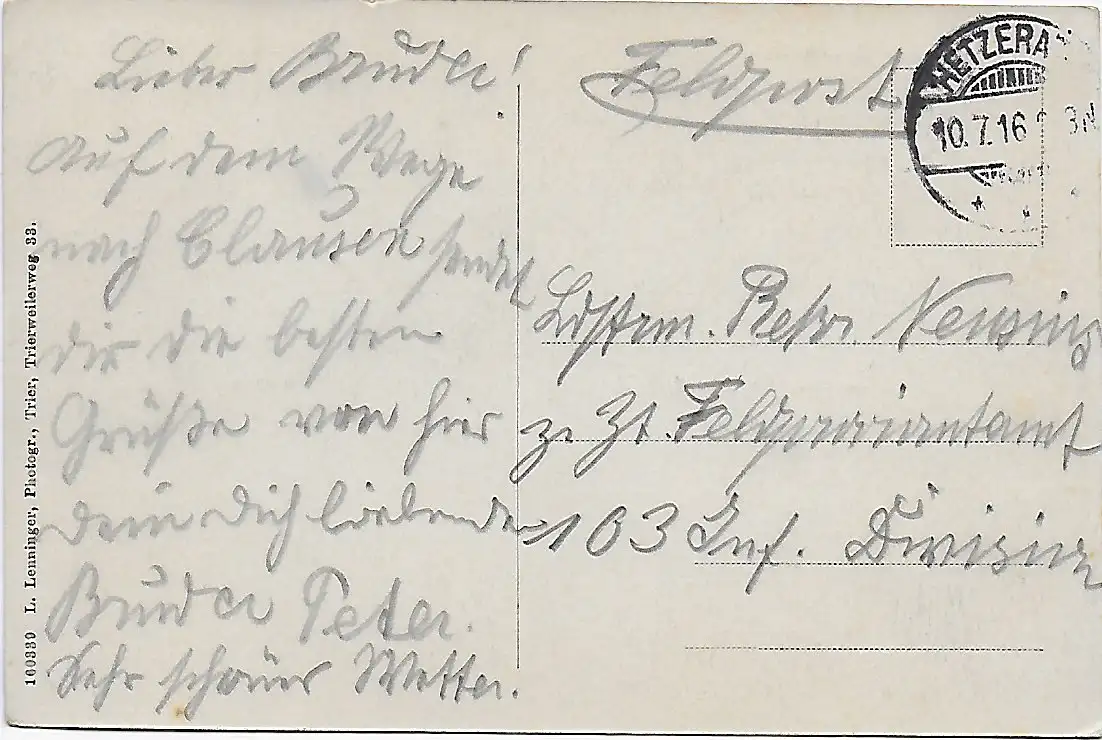 Lieber Bruder!
Auf dem Wege
nach Clausen sendet
dir die besten
Grüße von hier
dein dich liebender
Bruder Peter.
Sehr schönes Wetter.
Feldpost
HETZERA
10.7.16
Ldstrm. Rekr.
z. Zt. Feldproviantamt
103 Inf. Division
160339 L. Lenninger, Photogr., Trier, Trierweilerweg 33.